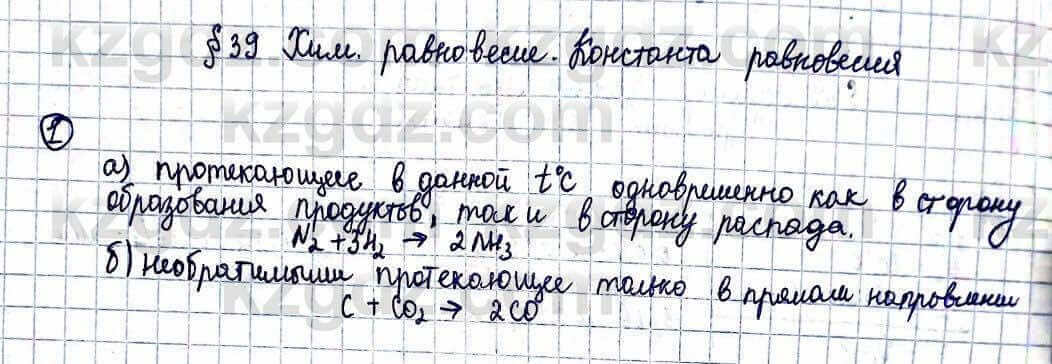 § 39 Хим. равновесие. Константа равновесия
1
а) протекающее в данной t°C одновременно как в сторону
образования продуктов, так и в сторону распада.
N₂ + 3H₂ → 2NH₃
б) необратимыми протекающее только в прямом направлении
C + CO₂ → 2CO
kzgdz.com